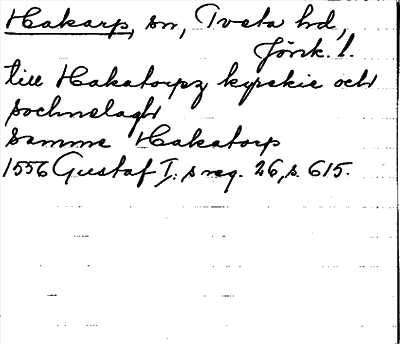 Hakarp, sn, Tveta hd,
Jönk. l.
till Hakatorpz kyrckie och
sochnelagh
samme Hakatorp
1556 Gustaf I:s reg. 26, s. 615.